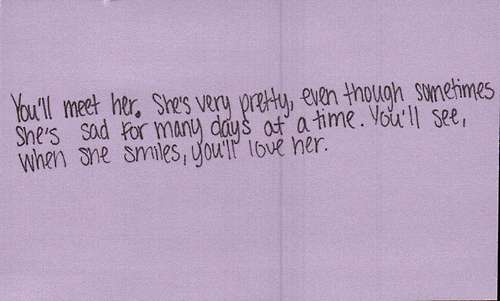 You'll meet her. She's very pretty, even though sometimes
she's sad for many days at a time. You'll see,
when she smiles, you'll love her.